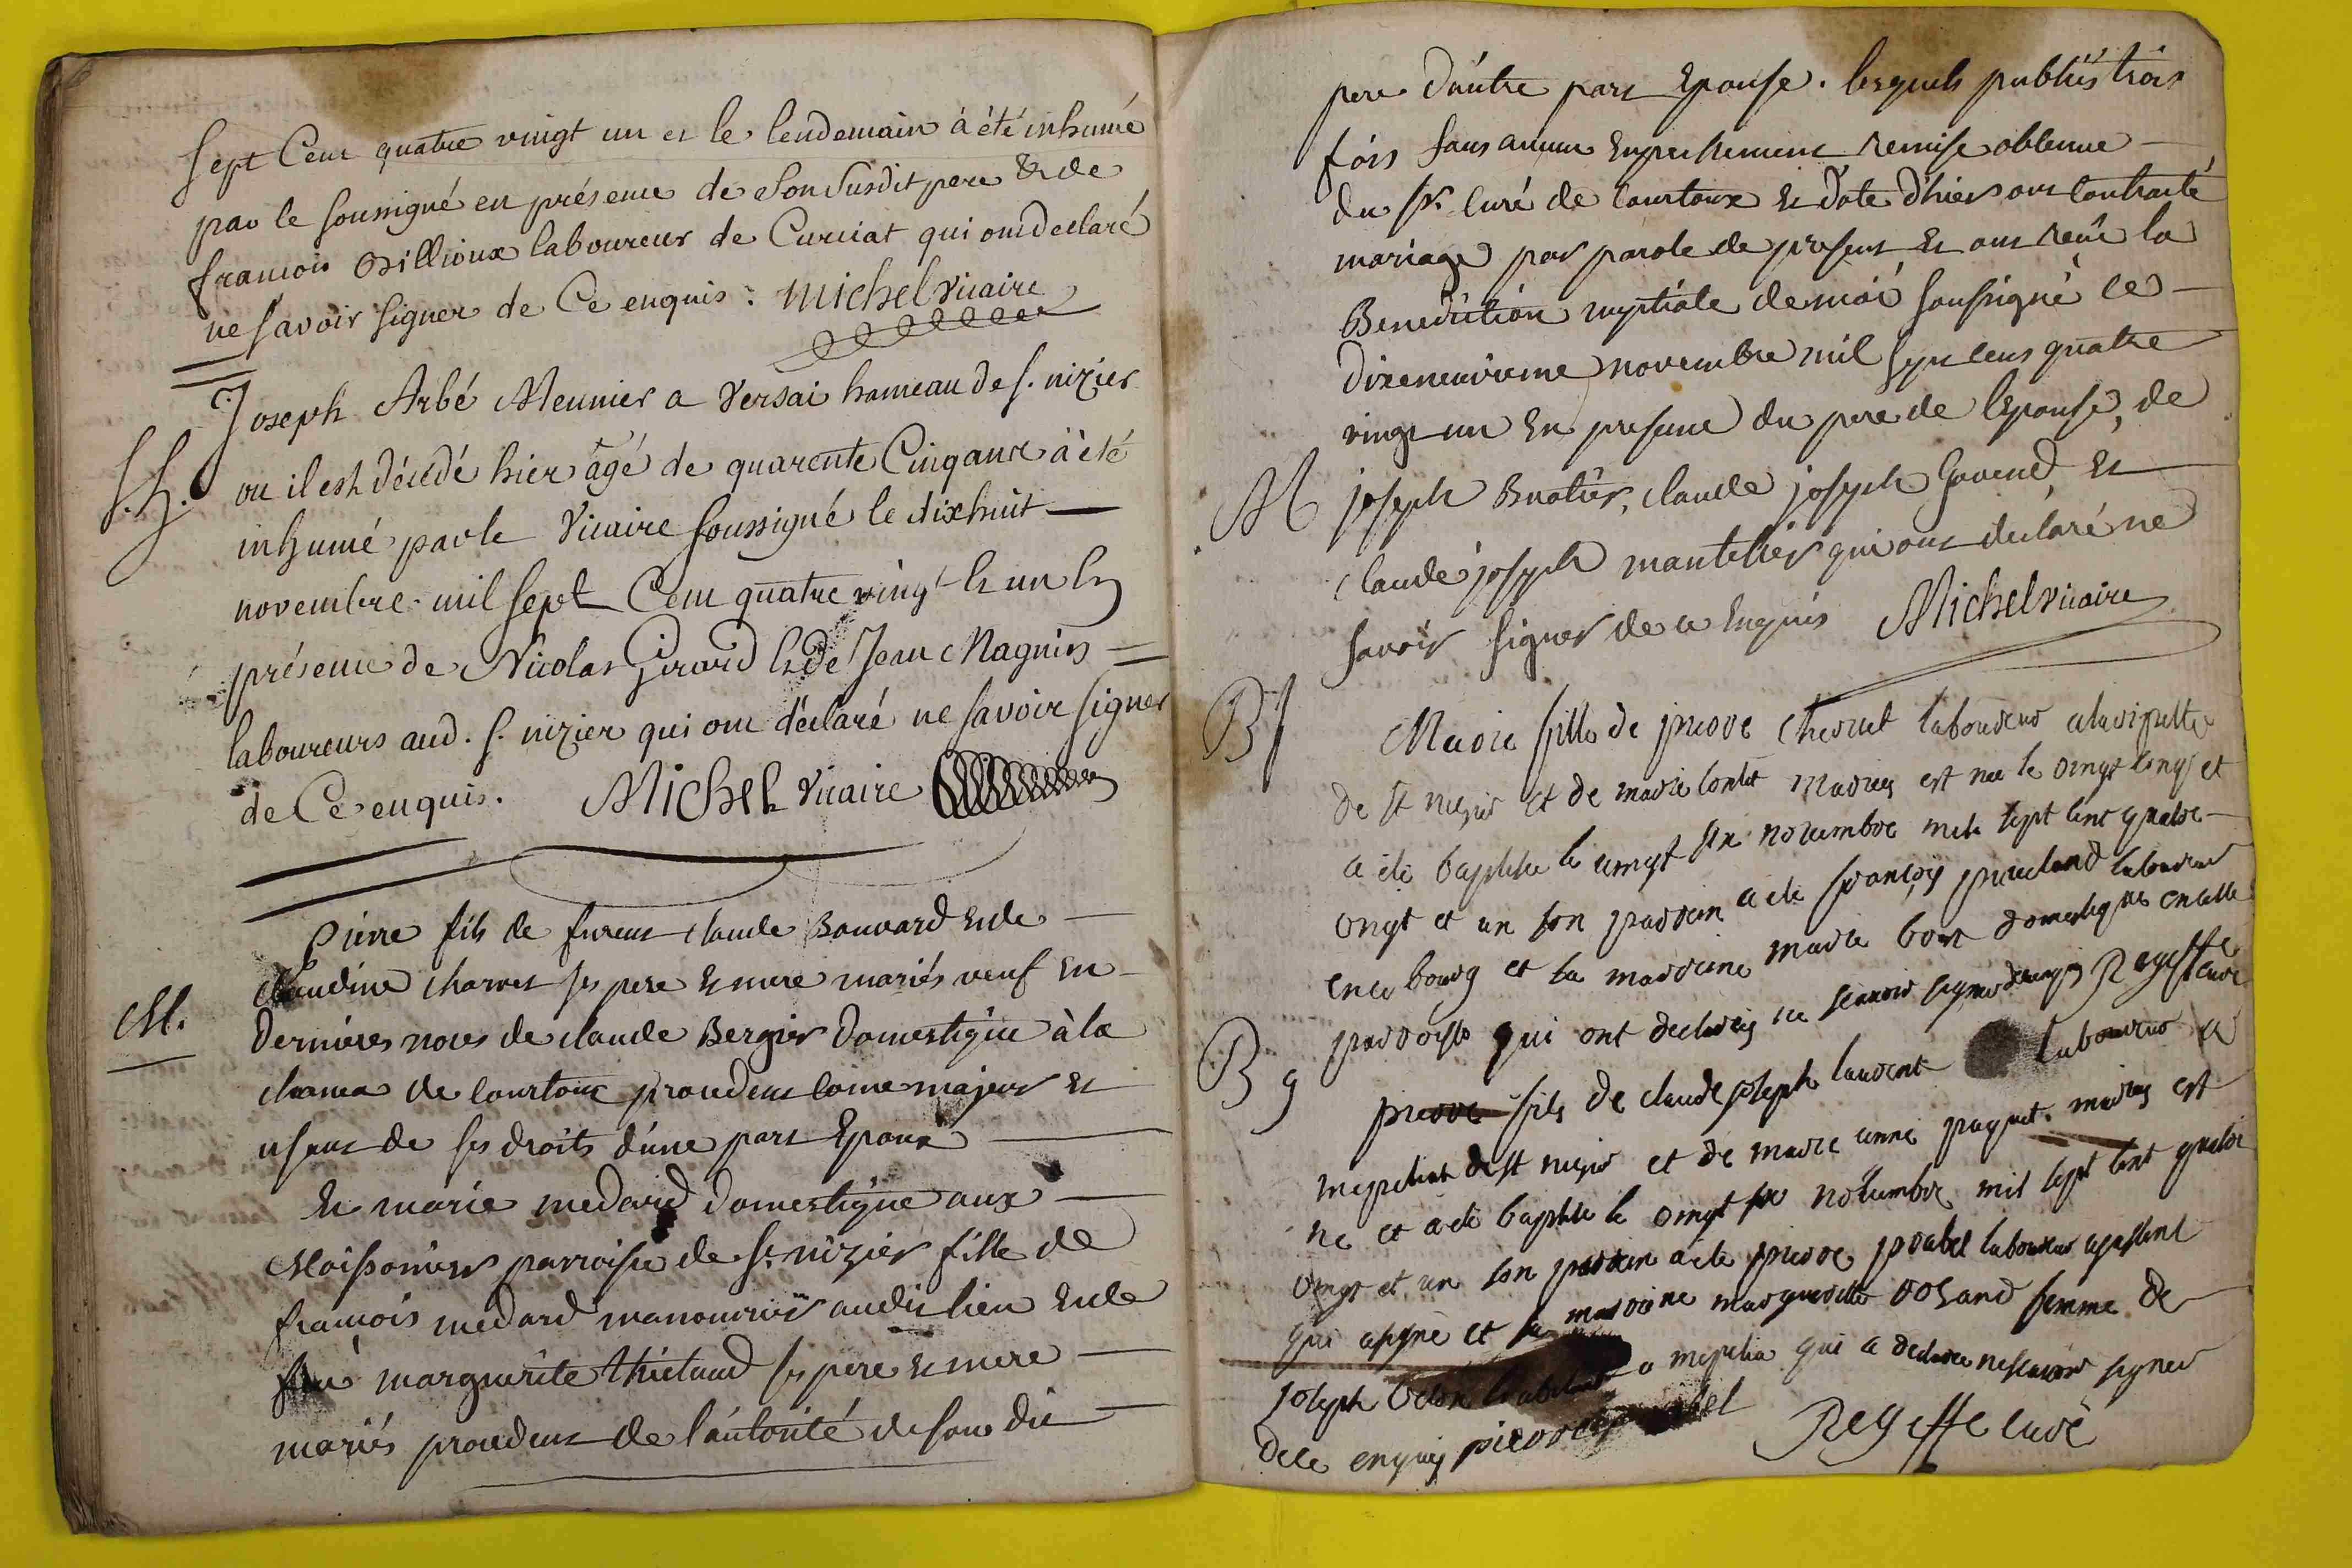 sept Cent quatre vingt un et le lendemain à été inhumé
par le soussigné en présence de son susdit pere & de
francois Osillioux laboureur de Curciat qui ont declaré
ne savoir signer de Ce enquis : Michel vicaire
Joseph Arbé Meunier a Versai hameau de s. nizier
S.h. ou il est décédé hier âgé de quarente Cinq ans à été
inhumé par le Vicaire soussigné le dixhuit
novembre mil sept Cent quatre vingt et un En
présence de Nicolas Girard et de Jean Magnin
laboureurs aud. s. nizier qui ont déclaré ne savoir signer
de Ce enquis. Michel vicaire
Pierre fils de furent claude Bouvard et de
M. claudine charvet ses pere et mere mariés veuf en
dernieres noces de claude Bergier domestique à la
de courtoux procedent come majeur et
usant de ses droits d'une part Epoux
Et marie medard domestique aux
Moissoniers parroisse de st. nizier fille de
francois medard manouvrier audit lieu et de
marguerite thietaud ses pere et mere
mariés procedent de l'autorité de son dit
pere d'autre part Epouse. lesquels publiés trois
fois sans aucun Empechement remise obtenue
du sr. curé de courtoux en date d'hier ont contracté
mariage par parole de present Et ont reçu la
Benediction nuptiale de moi soussigné ce
dixneuvieme novembre mil sept cens quatre
vingt un En presence du pere de l'Epouse, de
M joseph Buatier, claude joseph Gavend, et
claude joseph mantelier qui ont declaré ne
savoir signer de ce Enquis Michel vicaire
B f Marie fille de pierre laboureur
de st nizier et de marie contet mariez est nee le vingt cinq et
a ete baptisee le vingt six novembre mil sept cent quatre
vingt et un son parrein a ete françois laboureur
en ce bourg et la marreine marie domestique en cette
parroisse qui ont declarez ne scavoir signer d'enquis Regeffe curé
B g pierre fils de claude joseph laurent laboureur a
de st nizier et de marie anne paquet mariez est
ne et a ete baptisé le vingt six novembre mil sept cent quatre
vingt et un son parrein a ete pierre laboureur
qui a signe et la marreine margueritte femme de
joseph a qui a declaree ne scavoir signer
de ce enquis pierre Regeffe curé